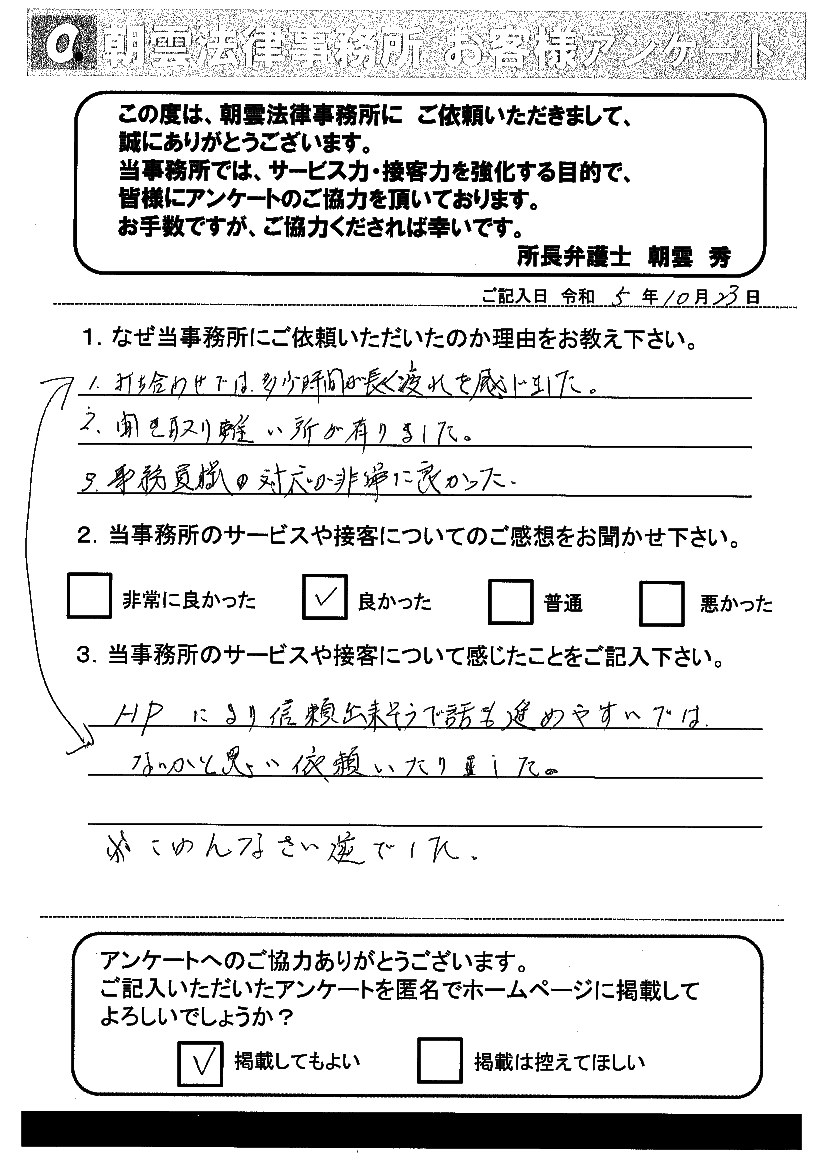 a. 朝雲法律事務所 お客様アンケート
この度は、朝雲法律事務所に ご依頼いただきまして、
誠にありがとうございます。
当事務所では、サービス力・接客力を強化する目的で、
皆様にアンケートのご協力を頂いております。
お手数ですが、ご協力くだされば幸いです。
所長弁護士 朝雲 秀
ご記入日 令和 5 年 10 月 23 日
1. なぜ当事務所にご依頼いただいたのか理由をお教え下さい。
1. 打ち合わせでは、多少時間が長く疲れを感じました。
2. 聞き取り難い所が有りました。
3. 事務員様の対応が非常に良かった.
2. 当事務所のサービスや接客についてのご感想をお聞かせ下さい。
非常に良かった ✓ 良かった 普通 悪かった
3. 当事務所のサービスや接客について感じたことをご記入下さい。
HP により信頼出来そうで話も進めやすいでは
ないかと思い依頼いたしました。
※ごめんなさい逆でした.
アンケートへのご協力ありがとうございます。
ご記入いただいたアンケートを匿名でホームページに掲載して
よろしいでしょうか？
✓ 掲載してもよい 掲載は控えてほしい